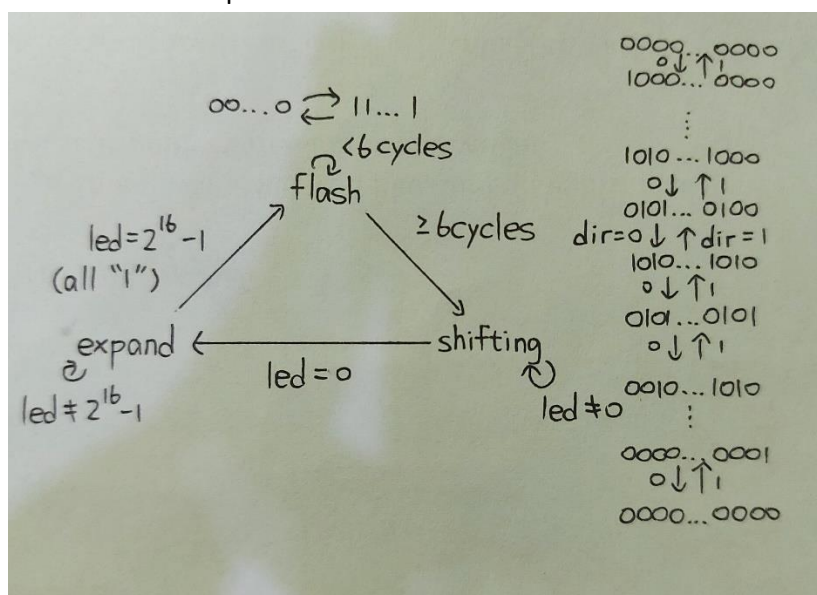 00...0 ⇄ 11...1
<6 cycles
flash
led=2^16-1
(all "1")
≥6cycles
expand
shifting
led=0
led≠2^16-1
led≠0
0000...0000
0↓ ↑1
1000...0000
⋮
1010...1000
0↓ ↑1
0101...0100
dir=0↓ ↑dir=1
1010...1010
0↓ ↑1
0101...0101
0↓ ↑1
0010...1010
⋮
0000...0001
0↓ ↑1
0000...0000